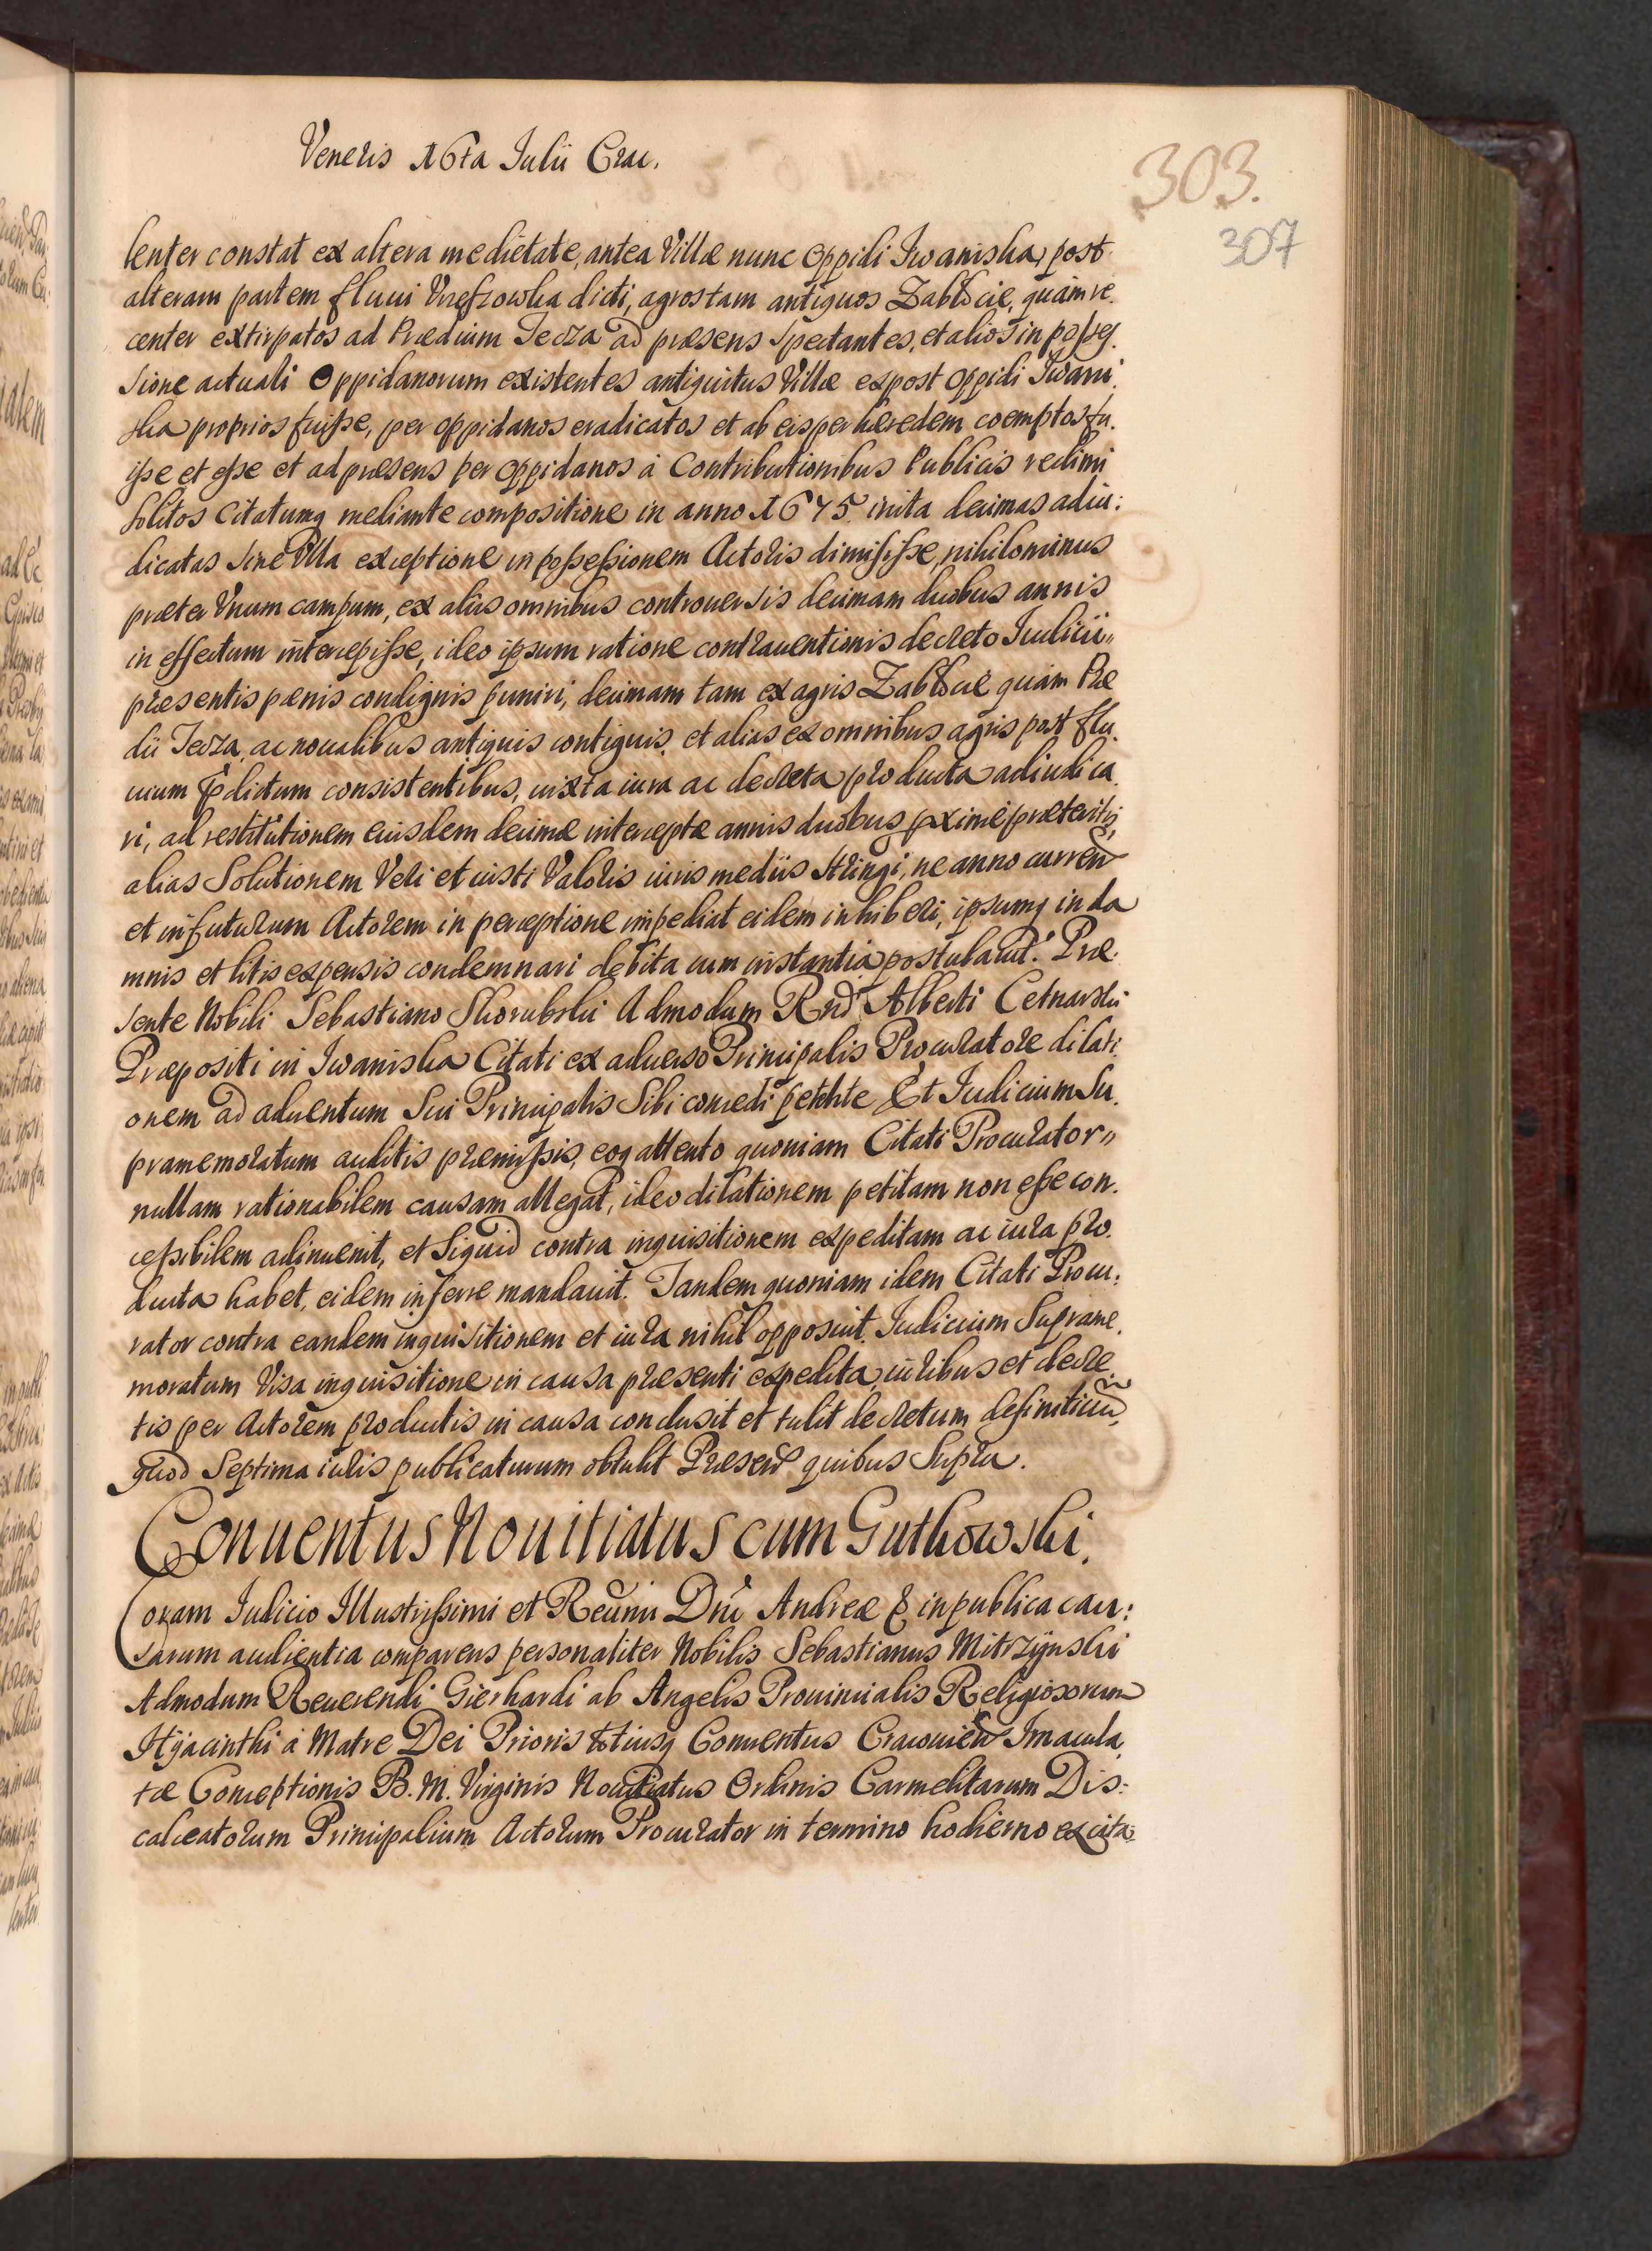 Veneris 16ta Julii Crac.
303.
307
lenter constat ex altera medietate, antea Villæ nunc Oppidi Jwaniska, post
alteram partem fluui dicti, agros tam antiquos Zabłocie, quàm re.
center extirpatos ad Prædium Jerza ad præsens spectantes, et alios in posses
sione actuali Oppidanorum existentes antiquitus Villæ expost Oppidi Jwani.
ska proprios fuisse, per oppidanos eradicatos et ab eis per hæredem coemptos fu.
isse et esse et ad præsens per Oppidanos à Contributionibus Publicis redimi
solitos Citatumq mediante compositione in anno 1675. inita decimas adiu:
dicatas sine Vlla exceptione in possessionem Actoris dimisisse, nihilominus
præter Vnum campum, ex aliis omnibus controuersis decimam duobus annis
in effectum intercepisse, ideo ipsum ratione contrauentionis decreto Iudicii
præsentis pœnis condignis puniri, decimam tam ex agris Zabłocie quàm Præ
dii Jerza, ac noualibus antiquis contiguis, et alias ex omnibus agris post flu.
uium p̃dictum consistentibus, iuxta iura ac decreta producta adiudica
ri, ad restitutionem eiusdem decimæ interceptæ annis duobus pximè præteritis,
alias Solutionem Veri et iusti Valoris iuris mediis stringi, ne anno curren̄
et in futurum Actorem in perceptione impediat eidem inhiberi, ipsumq in da
mnis et litis expensis condemnari debita cum instantia postulauit. Præ.
sente Nobili Sebastiano Skorubski Admodum Rnd̄i Alberti Cetnarski
Præpositi in Jwaniska Citati ex aduerso Principalis Procuratore dilati.
onem ad aduentum Sui Principalis Sibi concedi petente Et Iudicium Su.
pramemoratum auditis præmissis, eoq attento quoniam Citati Procurator
nullam rationabilem causam allegat, ideo dilationem petitam non esse con.
cessibilem adinuenit, et Siquid contra inquisitionem expeditam ac iura pro.
ducta habet, eidem inferre mandauit. Tandem quoniam idem Citati Procu:
rator contra eandem inquisitionem et iura nihil opposuit. Iudicium Suprame.
moratum Visa inquisitione in causa præsenti expedita, iuribus et decre
tis per Actorem productis in causa conclusit et tulit decretum definitiuū,
quod Septima iuris publicaturum obtulit Præsen̄ quibus Supra.
Conuentus Nouitiatus cum Gutkowski.
Coram Iudicio Illustrissimi et Reūmi Dnī Andreæ & in publica cau:
sarum audientia comparens personaliter Nobilis Sebastianus Mitrzynski
Admodum Reuerendi Gierhardi ab Angelis Prouincialis Religiosorum
Hyacinthi à Matre Dei Prioris totiusq Conuentus Cracouien̄ Imacula
tæ Conceptionis B. M. Virginis Nouitiatus Ordinis Carmelitarum Dis:
calceatorum Principalium Actorum Procurator in termino hodierno ex cita